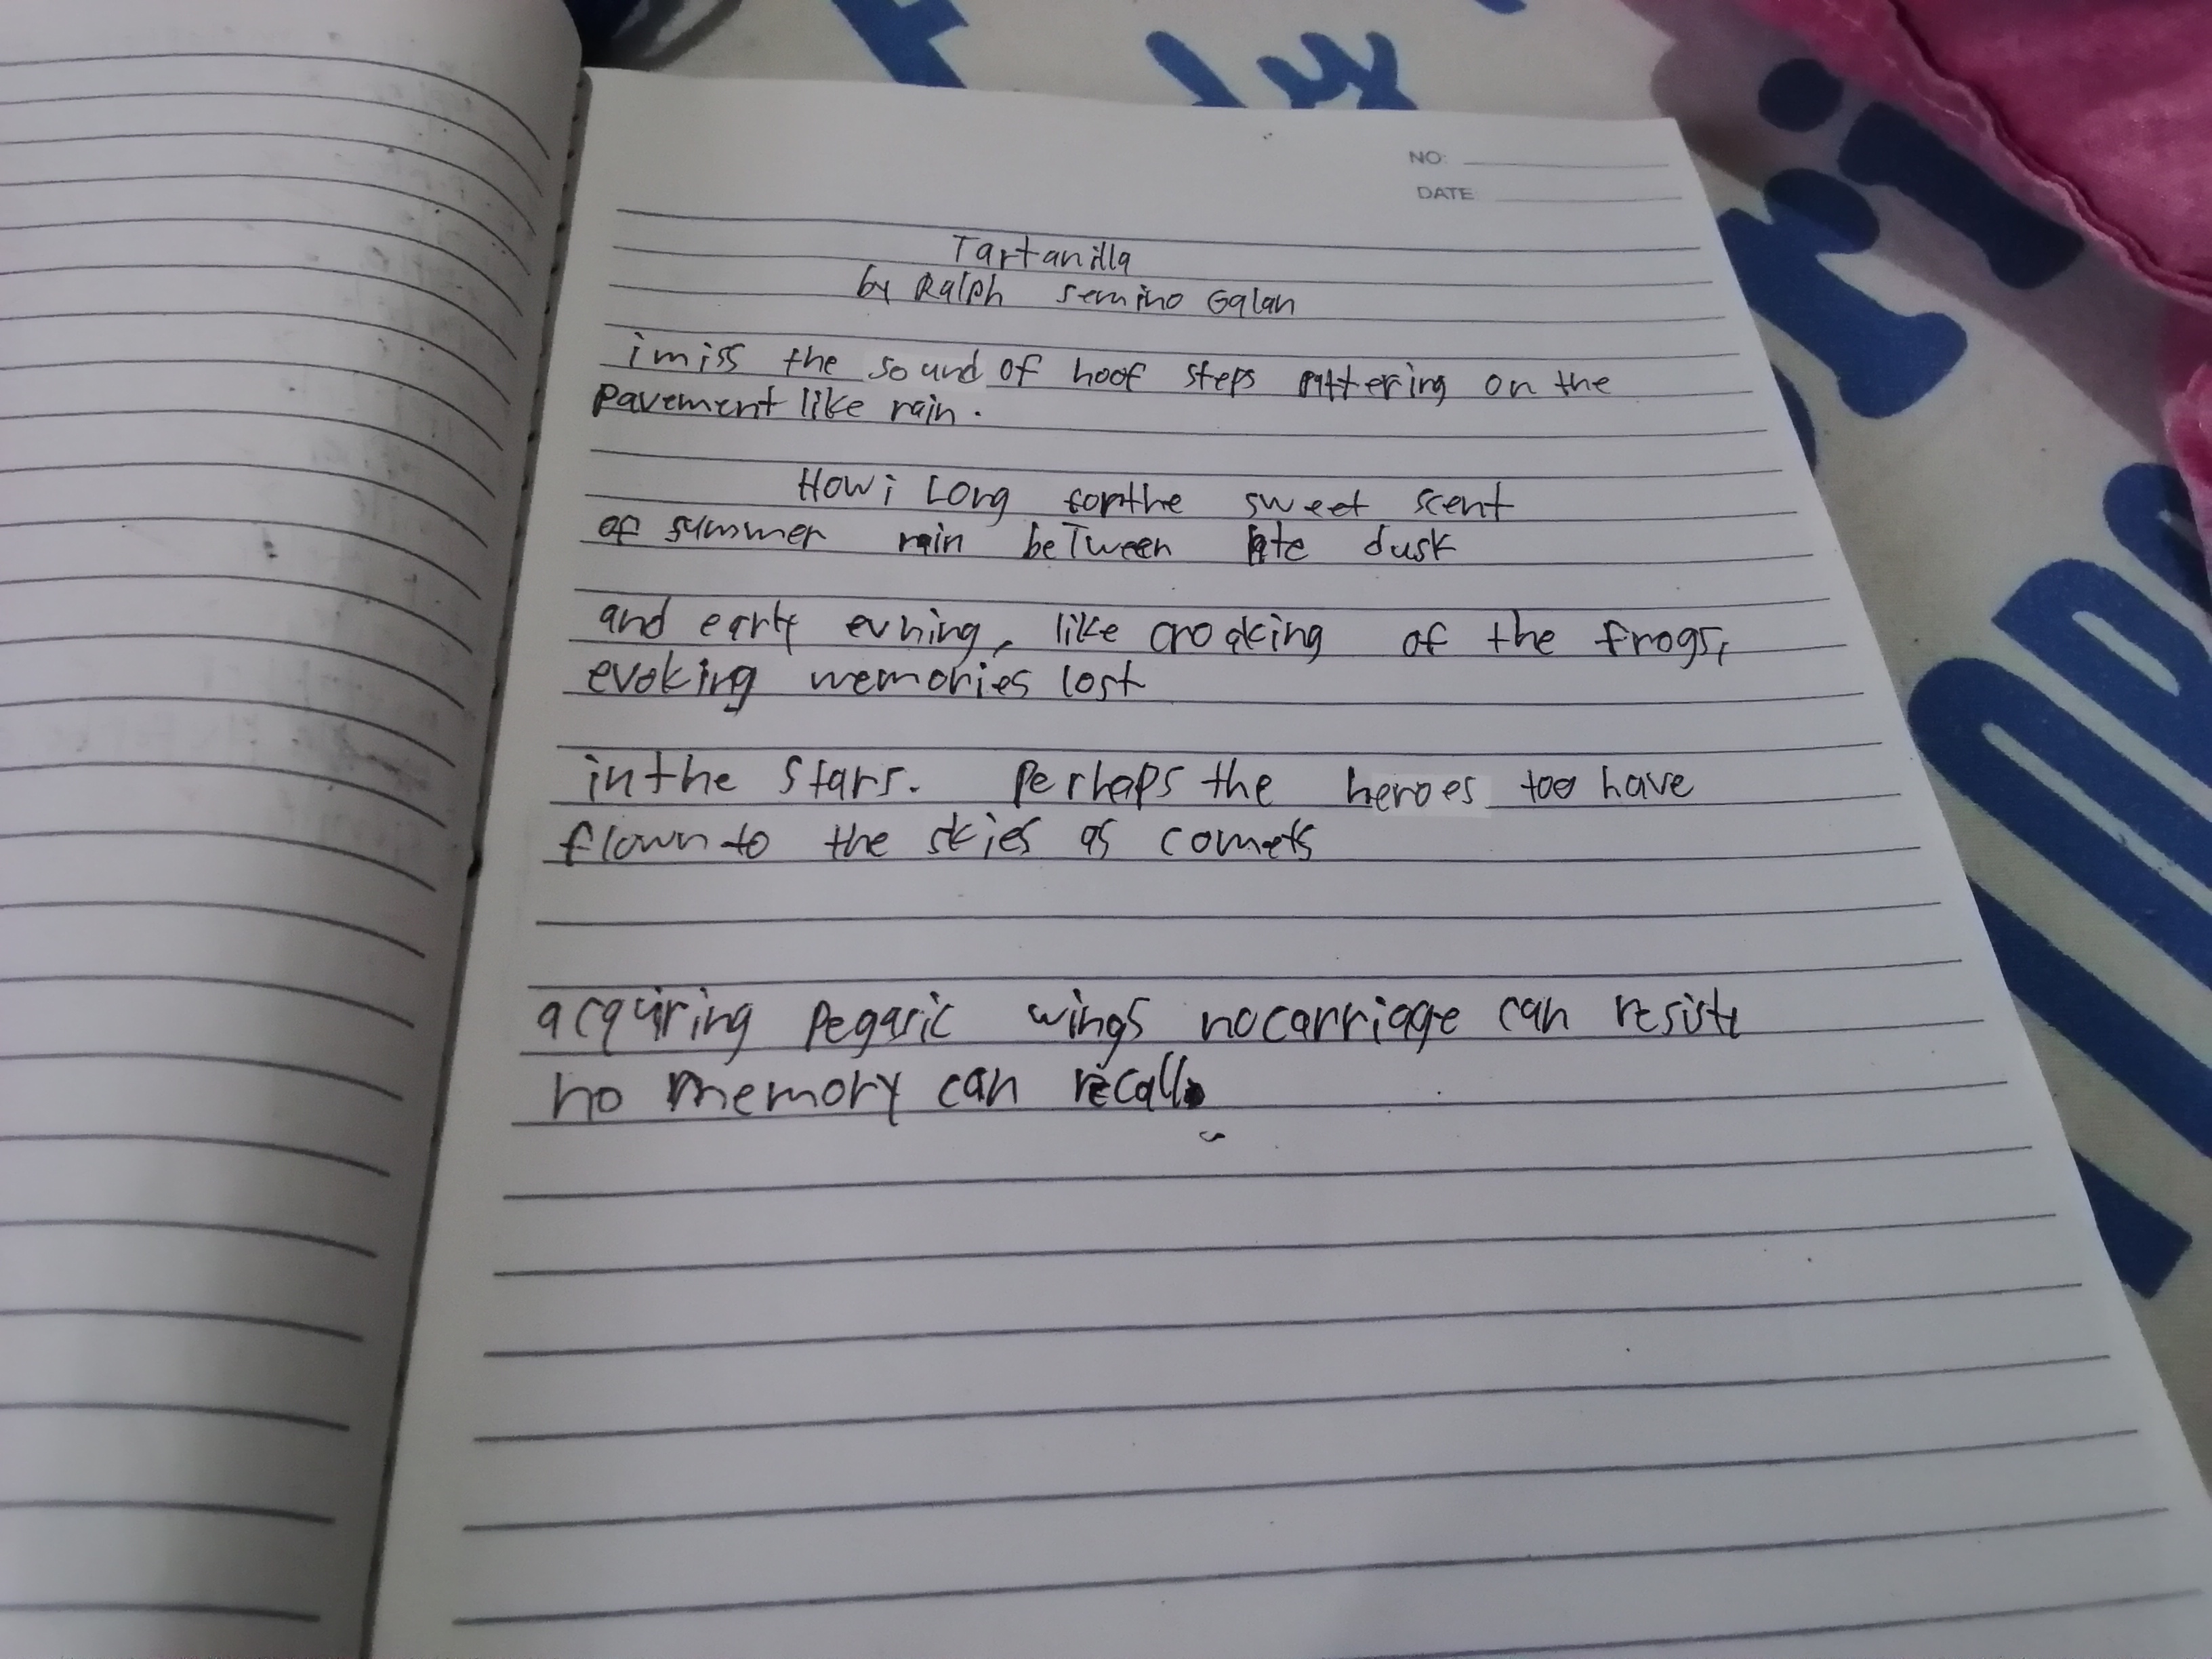 NO:
DATE
Tartanilla
by Ralph Semino Galan
i miss the sound of hoof steps pattering on the
pavement like rain.
How i Long for the sweet scent
of summer rain between late dusk
and early evning, like croaking of the frogs,
evoking memories lost
in the stars. Perhaps the heroes too have
flown to the skies as comets
acquiring pegasic wings no carriage can resist
no memory can recall